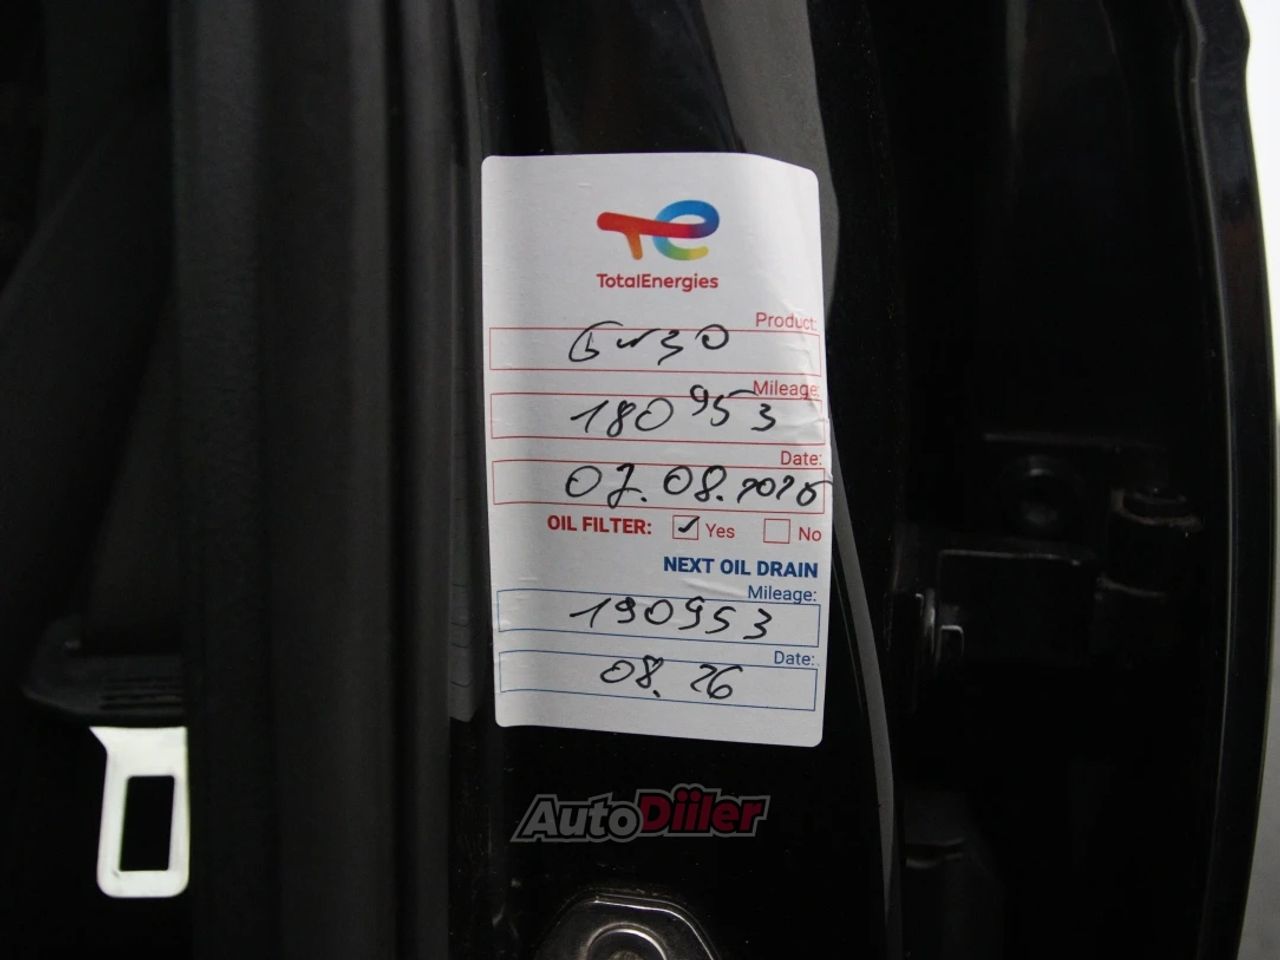 TotalEnergies
Product:
5w30
Mileage:
180953
Date:
07.08.2025
OIL FILTER: ✓ Yes No
NEXT OIL DRAIN
Mileage:
190953
Date:
08.26
AutoDiiler